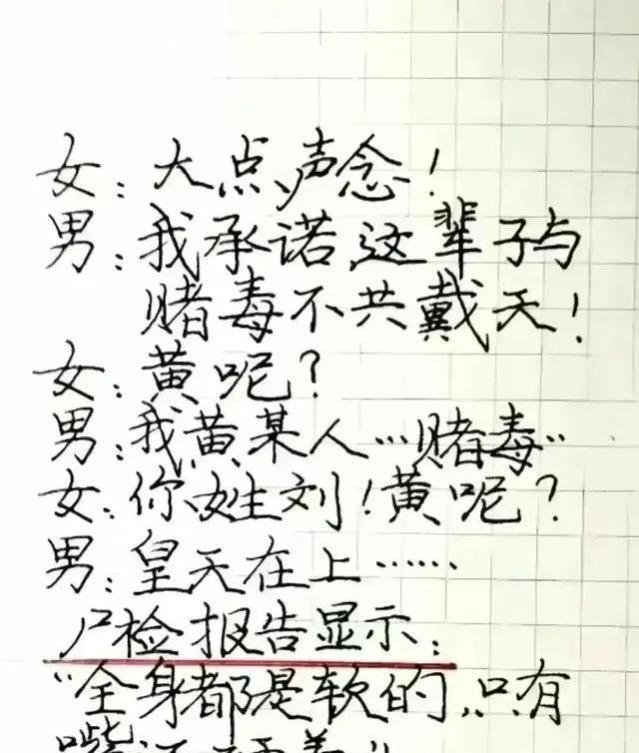 女:大点声念!
男:我承诺这辈子与
赌毒不共戴天!
女:黄呢?
男:我黄某人…赌毒…
女:你姓刘!黄呢?
男:皇天在上……
尸检报告显示:
"全身都是软的,只有
嘴